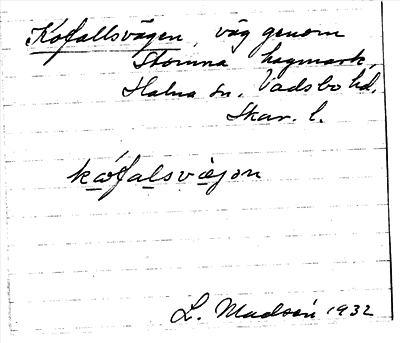 Kofallsvägen, väg genom
Stomna hagmark,
Halna sn. Vadsbo hd.
Skar. l.
kǿfalsvægən
L. Madsén 1932